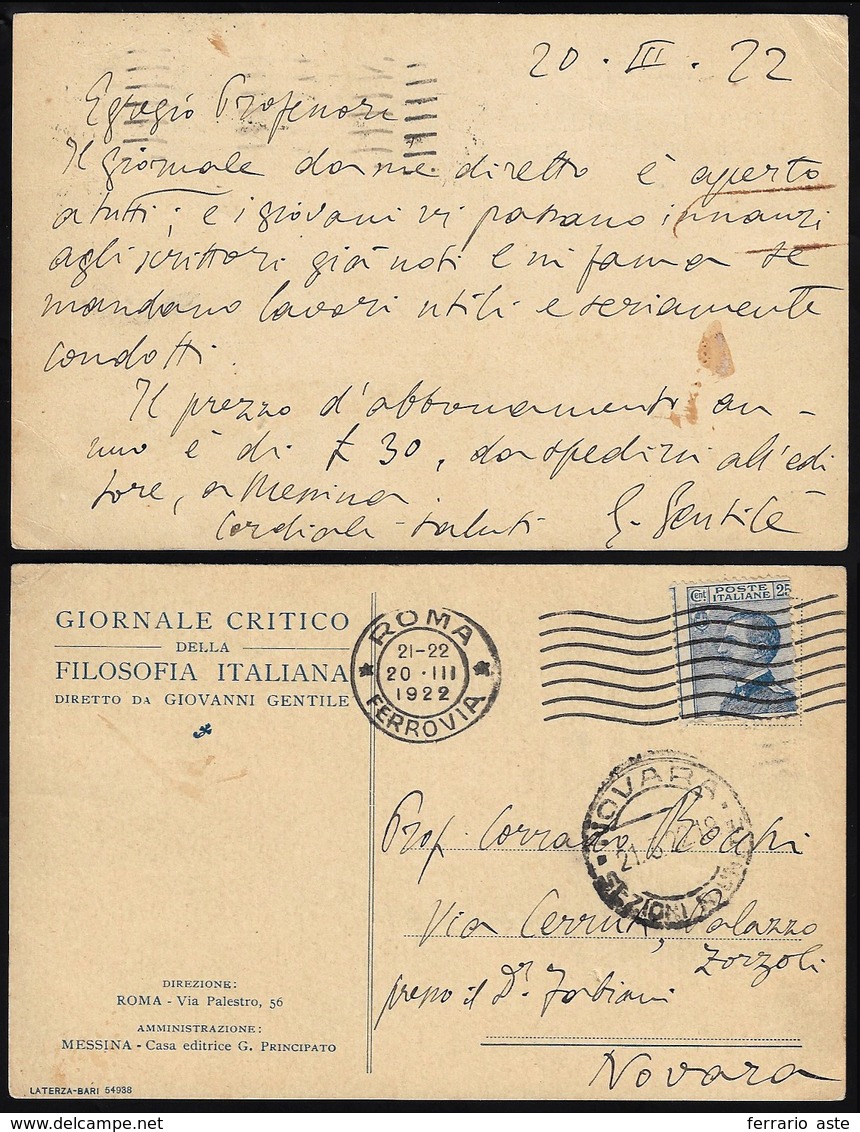 20 . III . 22
Egregio Professore
Il giornale da me diretto è aperto
a tutti; e i giovani vi passano innanzi
agli scrittori già noti e in fama se
mandano lavori utili e seriamente
condotti.
Il prezzo d'abbonamento an-
nuo è di £ 30, da spedirsi all'edi
tore, a Messina.
Cordiali saluti G. Gentile
GIORNALE CRITICO
DELLA
FILOSOFIA ITALIANA
DIRETTO DA GIOVANNI GENTILE
ROMA
21-22
20 · III
1922
FERROVIA
Cent POSTE ITALIANE 25
NOVARA
21.3.22 18
SEZIONI RIUNITE
Prof. Corrado
Via Cerruti, Palazzo
Zorzoli
presso il Dr. Fabiani
Novara
DIREZIONE:
ROMA - Via Palestro, 56
AMMINISTRAZIONE:
MESSINA - Casa editrice G. PRINCIPATO
LATERZA-BARI 54938
ferrario aste